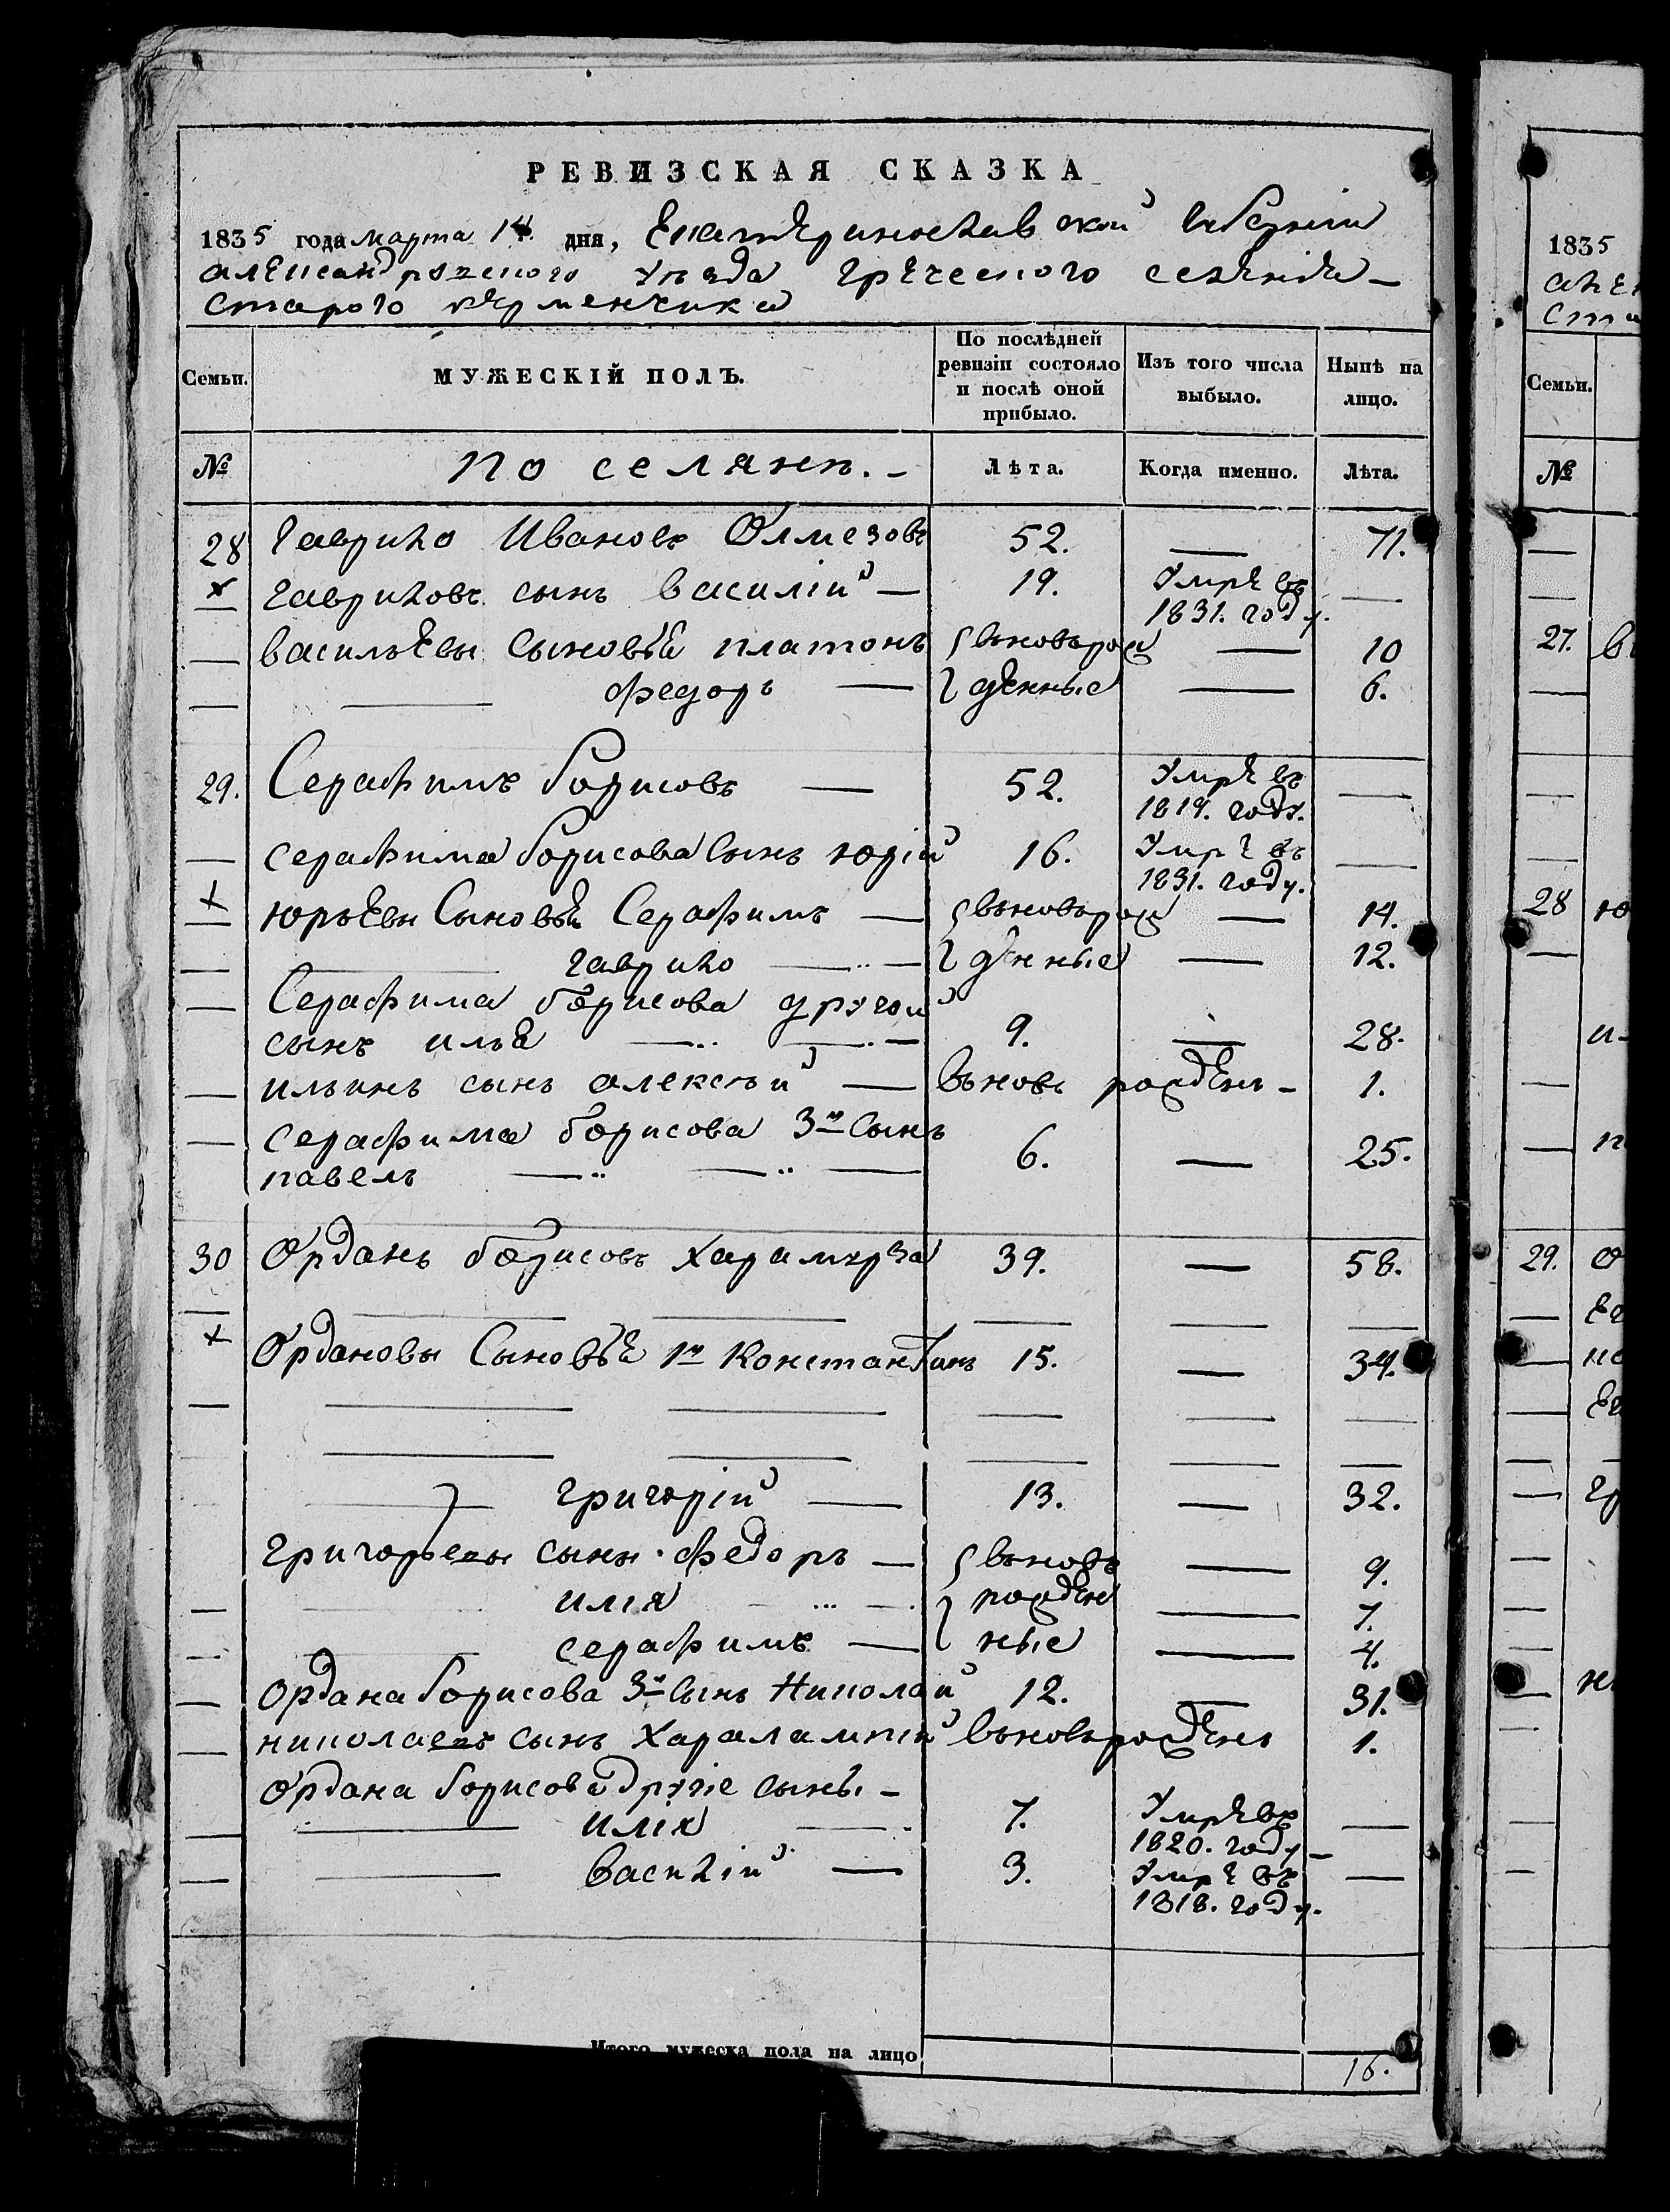 РЕВИЗСКАЯ СКАЗКА
1835 года марта 14. дня, Екатеринославской Губерніи
александровского уезда греческого селенія
старого керменчика
Семьи. МУЖЕСКІЙ ПОЛЪ. По послѣдней ревизіи состояло и послѣ оной прибыло. Изъ того числа выбыло. Нынѣ на лицо.
№ по селянъ. Лѣта. Когда именно. Лѣта.
28 Гаврило Ивановъ Олмезовъ 52. — 71.
Гавриловъ сынъ Василій — 19. Умре въ 1831. году. —
Васильевы Сыновья платонъ вновьрож — 10
федоръ — денные — 6.
29. Серафимъ борисовъ — 52. Умре въ 1819. году. —
Серафима борисова сынъ юрій 16. Умре въ 1831. году. —
юрьевы Сыновья Серафимъ — вновьрож — 14.
гаврило — денные — 12.
Серафима борисова другой
сынъ илья 9. — 28.
ильинъ сынъ алексей — вновь рожденъ — 1.
Серафима борисова 3й сынъ
павелъ 6. — 25.
30 Орданъ борисовъ Харамурза 39. — 58.
Ордановы Сыновья 1й Константинъ 15. — 34.
григорій — 13. — 32.
григорьевы сыны федоръ — вновь — 9.
илія рожден — 7.
серафимъ — ные — 4.
Ордана борисова 3й сынъ Николай 12. — 31.
николаевъ сынъ Харалампій вновьрожденъ 1.
Ордана борисова другіе сыны —
илія 7. Умре въ 1820. году —
Василій — 3. Умре въ 1818. году. —
Итого мужеска пола на лицо 16.
1835
Семьи.
№
27.
28
29.